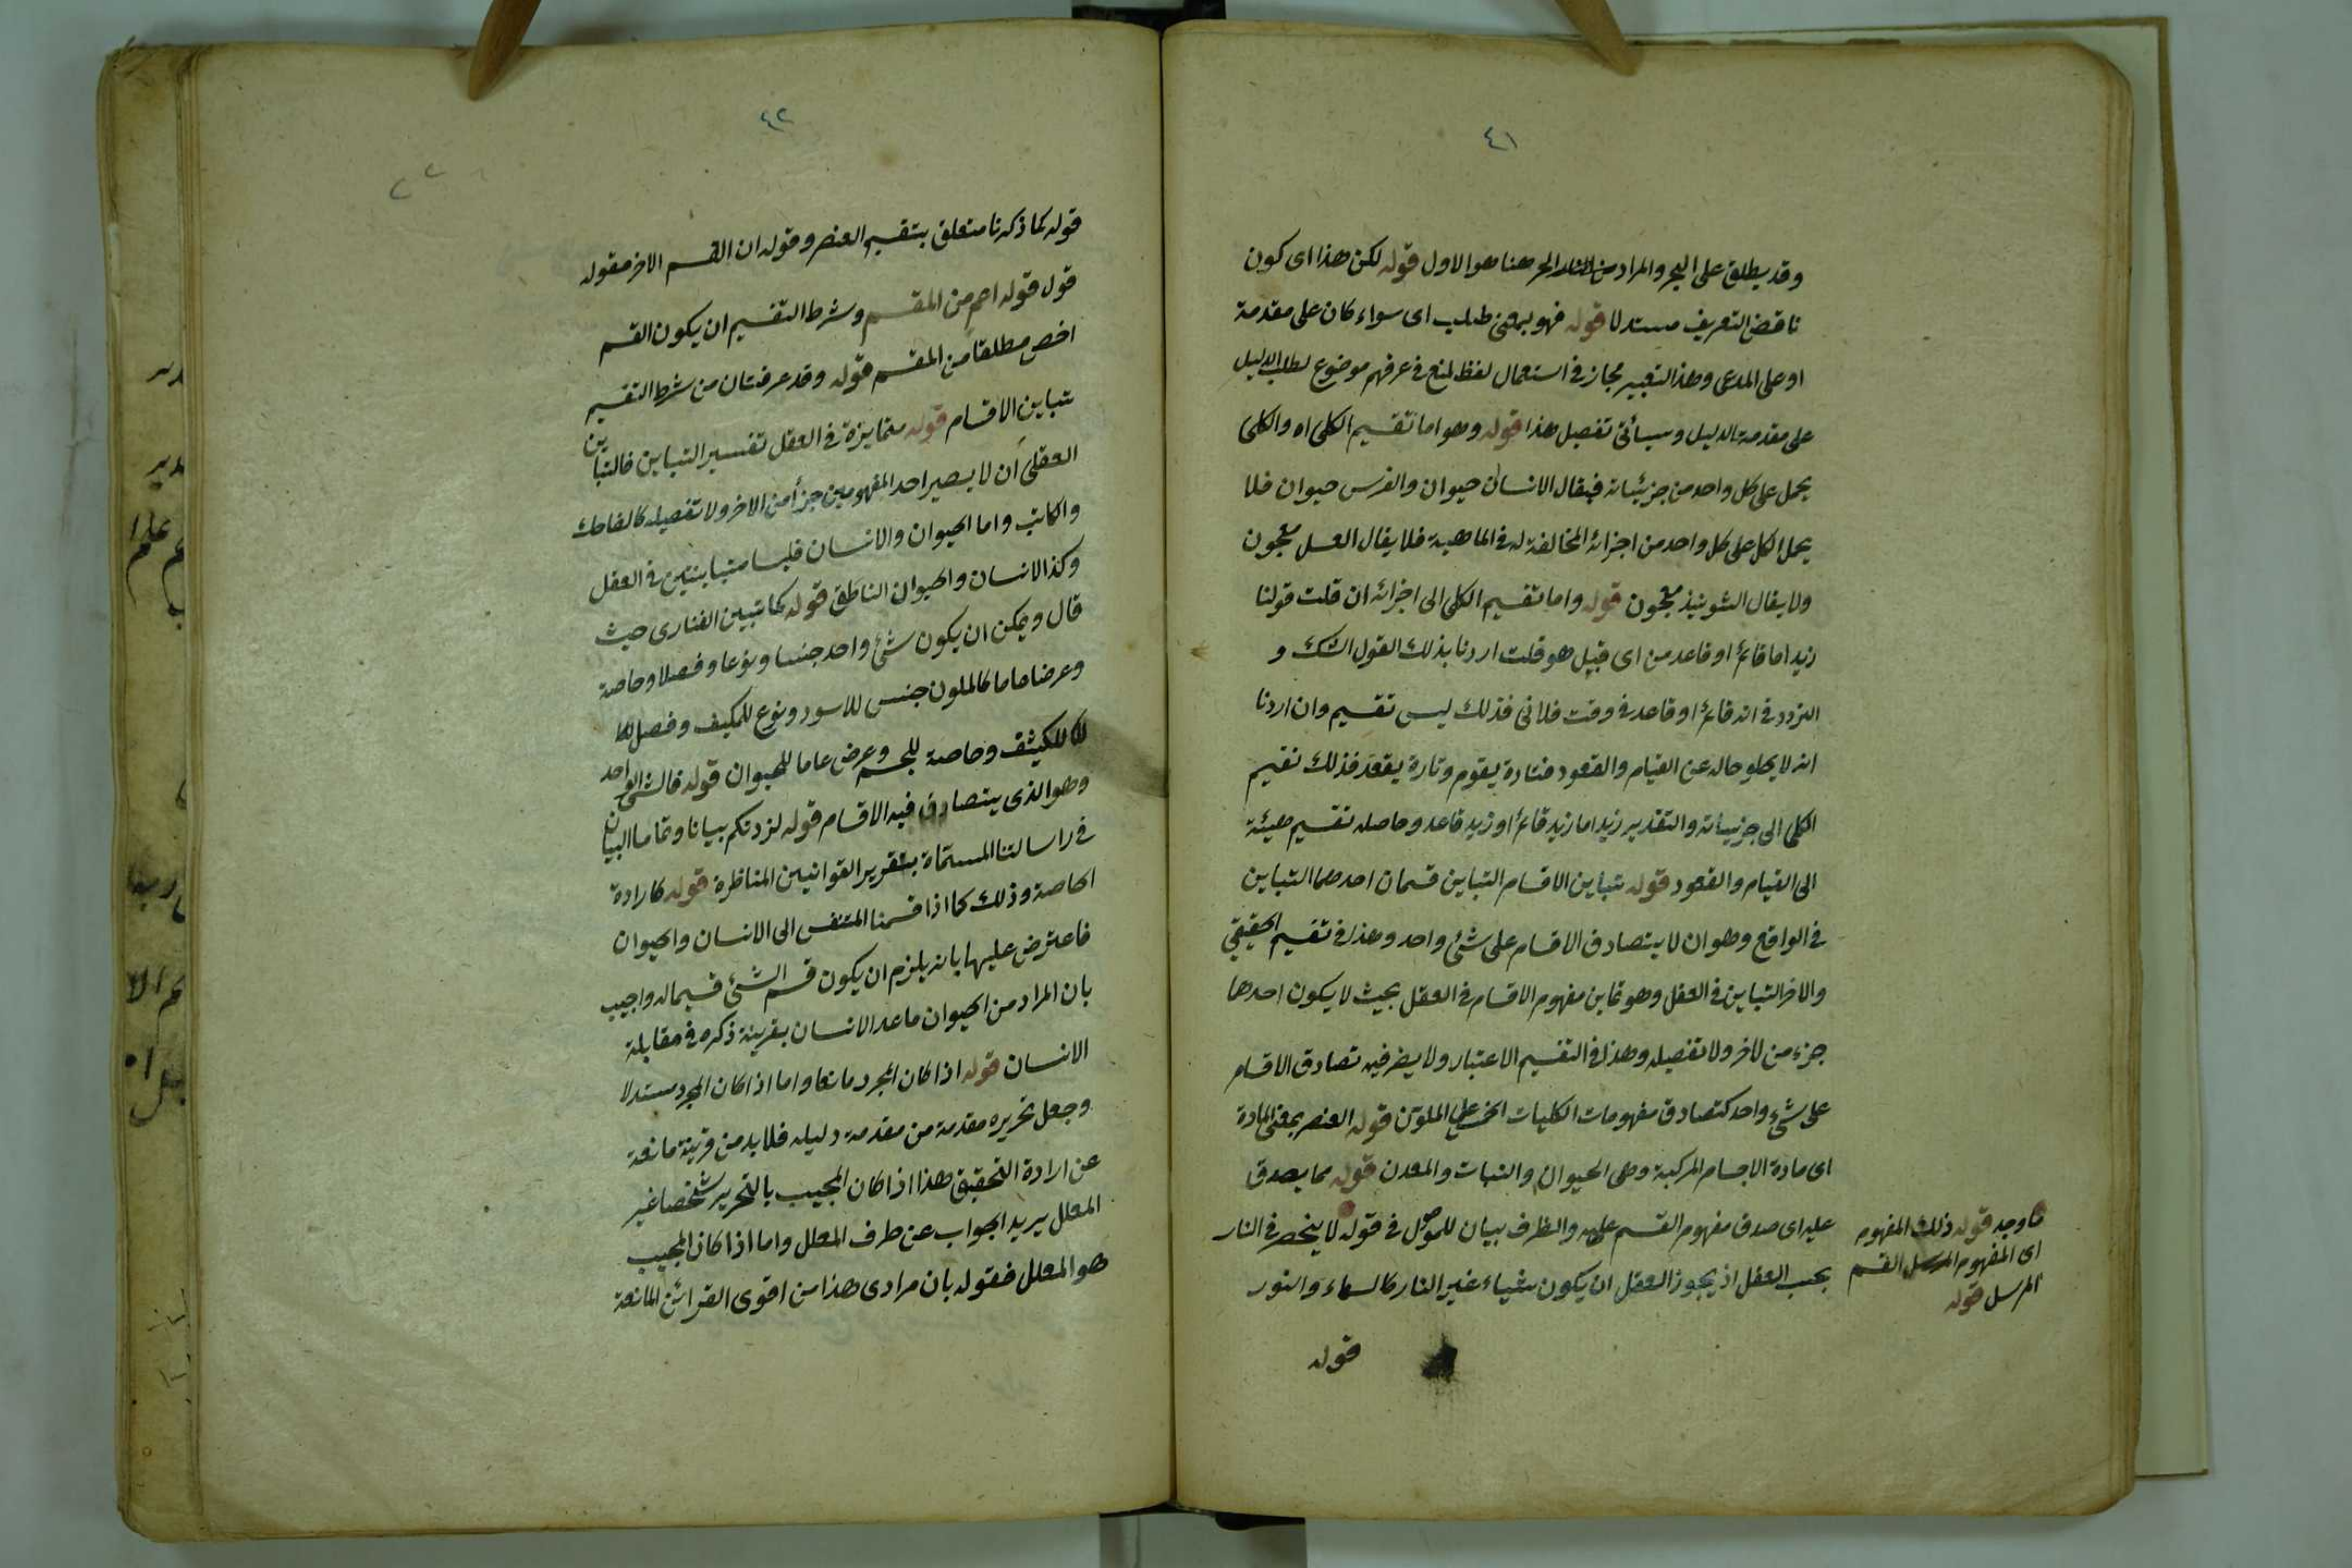 ٤١
وقد يطلق على البحر والمراد من الحر هنا هو الاول قوله لكن هذا اى كون
ناقض التعريف مستدلا قوله فهو بمعنى طلب اى سواء كان على مقدمة
او على المدعى وهذا التعبير مجاز فى استعمال لفظ لمنع فى عرفهم موضوع لطلب الدليل
على مقدمة الدليل وسيأتى تفصيل هذا قوله وهو اما تقسيم الكلى اه والكلى
يحمل على كل واحد من جزئياته فيقال الانسان حيوان والفرس حيوان فلا
يحمل الكل على كل واحد من اجزائه المخالفة له فى الماهية فلا يقال العسل معجون
ولا يقال الشونيذ معجون قوله واما تقسيم الكلى الى اجزائه ان قلت قولنا
زيد اما قائم او قاعد من اى قبيل هو قلت اردنا بذلك القول الشك و
التردد فى انه قائم او قاعد فى وقت فلانى فذلك ليس تقسيم وان اردنا
انه لا يخلو حاله عن القيام والقعود فتارة يقوم وتارة يقعد فذلك تقسيم
الكلى الى جزئياته والتقدير زيد اما زيد قائم او زيد قاعد وحاصله تقسيم هيئة
الى القيام والقعود قوله تباين الاقسام التباين قسمان احدهما التباين
فى الواقع وهو ان لا يتصادق الاقسام على شئ واحد وهذا فى تقسيم الحقيقى
والاخر التباين فى العقل وهو تماين مفهوم الاقسام فى العقل بحيث لا يكون احدها
جزء من لاخر ولا تفصيله وهذا فى التقسيم الاعتبار ولا يضر فيه تصادق الاقسام
على شئ واحد كتصادق مفهومات الكليات الخمس على الملون قوله العنصر بمعنى المادة
اى مادة الاجسام المركبة وهى الحيوان والنبات والمعدن قوله مما يصدق
عليه اى صدق مفهوم القسم عليه والظرف بيان للموصول فى قوله لا ينحصر فى النار
بحسب العقل اذ يجوز العقل ان يكون شياء غير النار كالسماء والنور
ما وجد قوله ذلك المفهوم
اى المفهوم المرسل القسم
المرسل قوله
قوله
٤٢
قوله كما ذكرنا متعلق بتقسيم العنصر وقوله ان القسم الاخر مقوله
قول قوله اعم من المقسم وشرط التقسيم ان يكون القسم
اخص مطلقا من المقسم قوله وقد عرفت ان من شرط التقسيم
تباين الاقسام قوله متمايزة فى العقل تفسير التباين فالتباين
العقلى ان لا يصير احد المفهومين جزأ من الاخر ولا تفصيله كالضاحك
والكاتب واما الحيوان والانسان فليسا متباينتين فى العقل
وكذا الانسان والحيوان الناطق قوله كما تبين الفنارى حيث
قال ويمكن ان يكون شئ واحد جنسا ونوعا وفصلا وخاصة
وعرضا عاما كالملون جنس للاسود ونوع للمكيف وفصل
للكثيف وخاصة للجسم وعرض عاما للحيوان قوله فالشئ الواحد
وهو الذى يتصادق فيه الاقسام قوله لزدتكم بيانا وتماما البيان
فى راسالتنا المسماة بتقرير القوانين المناظرة قوله كارادة
الخاصة وذلك كما اذا قسمنا المتنفس الى الانسان والحيوان
فاعترض عليها بانه يلزم ان يكون قسم الشئ قسيما له واجيب
بان المراد من الحيوان ماعدا الانسان بقرينة ذكره فى مقابلة
الانسان قوله اذا كان المجرد مانعا واما اذا كان المجرد مستدلا
وجعل تحريره مقدمة من مقدمة دليله فلا بد من قرينة مانعة
عن ارادة التحقيق هذا اذا كان المجيب بالتحرير شخصا غير
المعلل يريد الجواب عن طرف المعلل واما اذا كان المجيب
هو المعلل فقوله بان مرادى هذا من اقوى القرائن المانعة